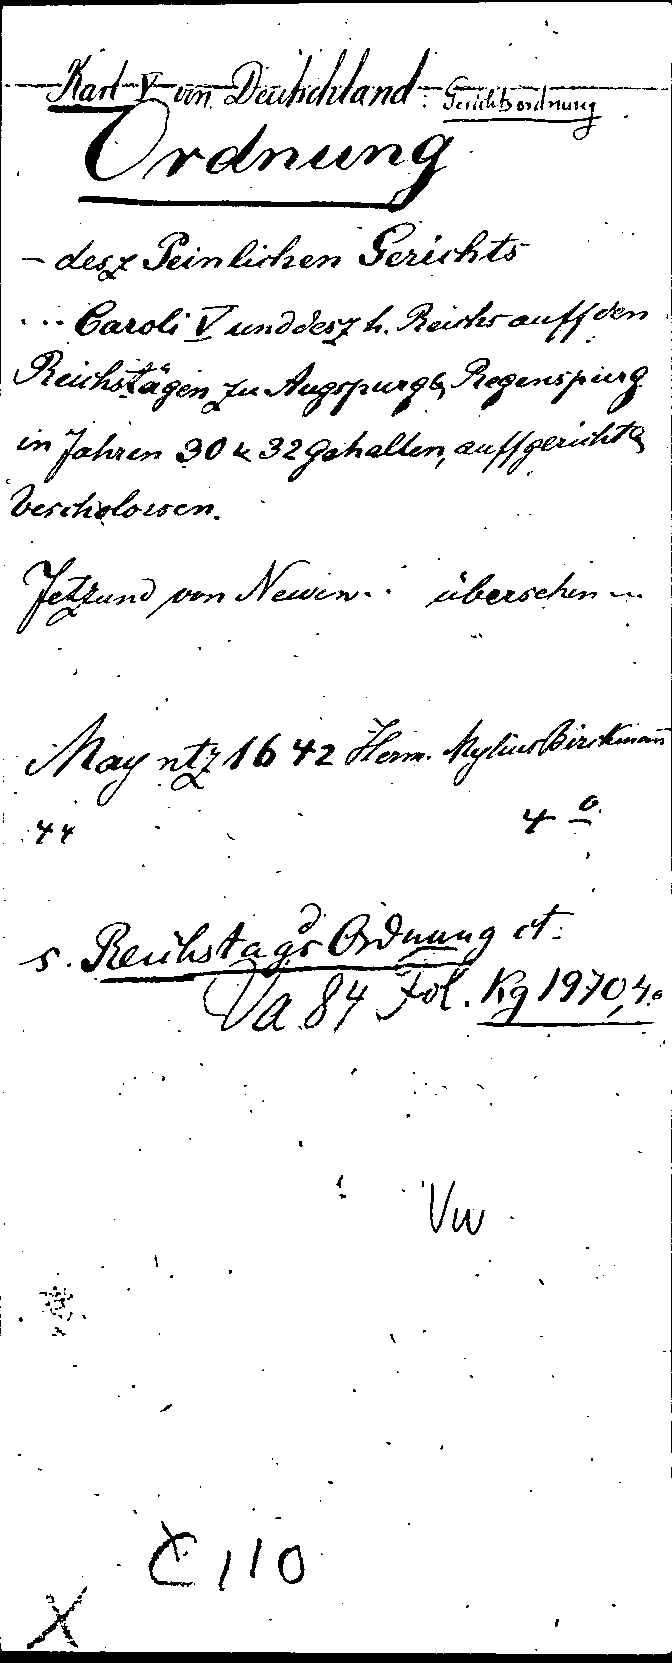 Karl V von Deutschland: Gerichtsordnung
Ordnung
– desz Peinlichen Gerichts
... Caroli V und desz h. Reichs auff den
Reichstägen zu Augspurg & Regenspurg
in Jahren 30 & 32 gehalten, auffgericht &
beschlossen.
Jetzund von Newen.. übersehen ...
Mayntz 1642 Herm. Mylius Birckmann
44 4º
s. Reichstags Ordnung et.
Va 84 Fol. Kg 1970, 4º
Vw
C 110
X